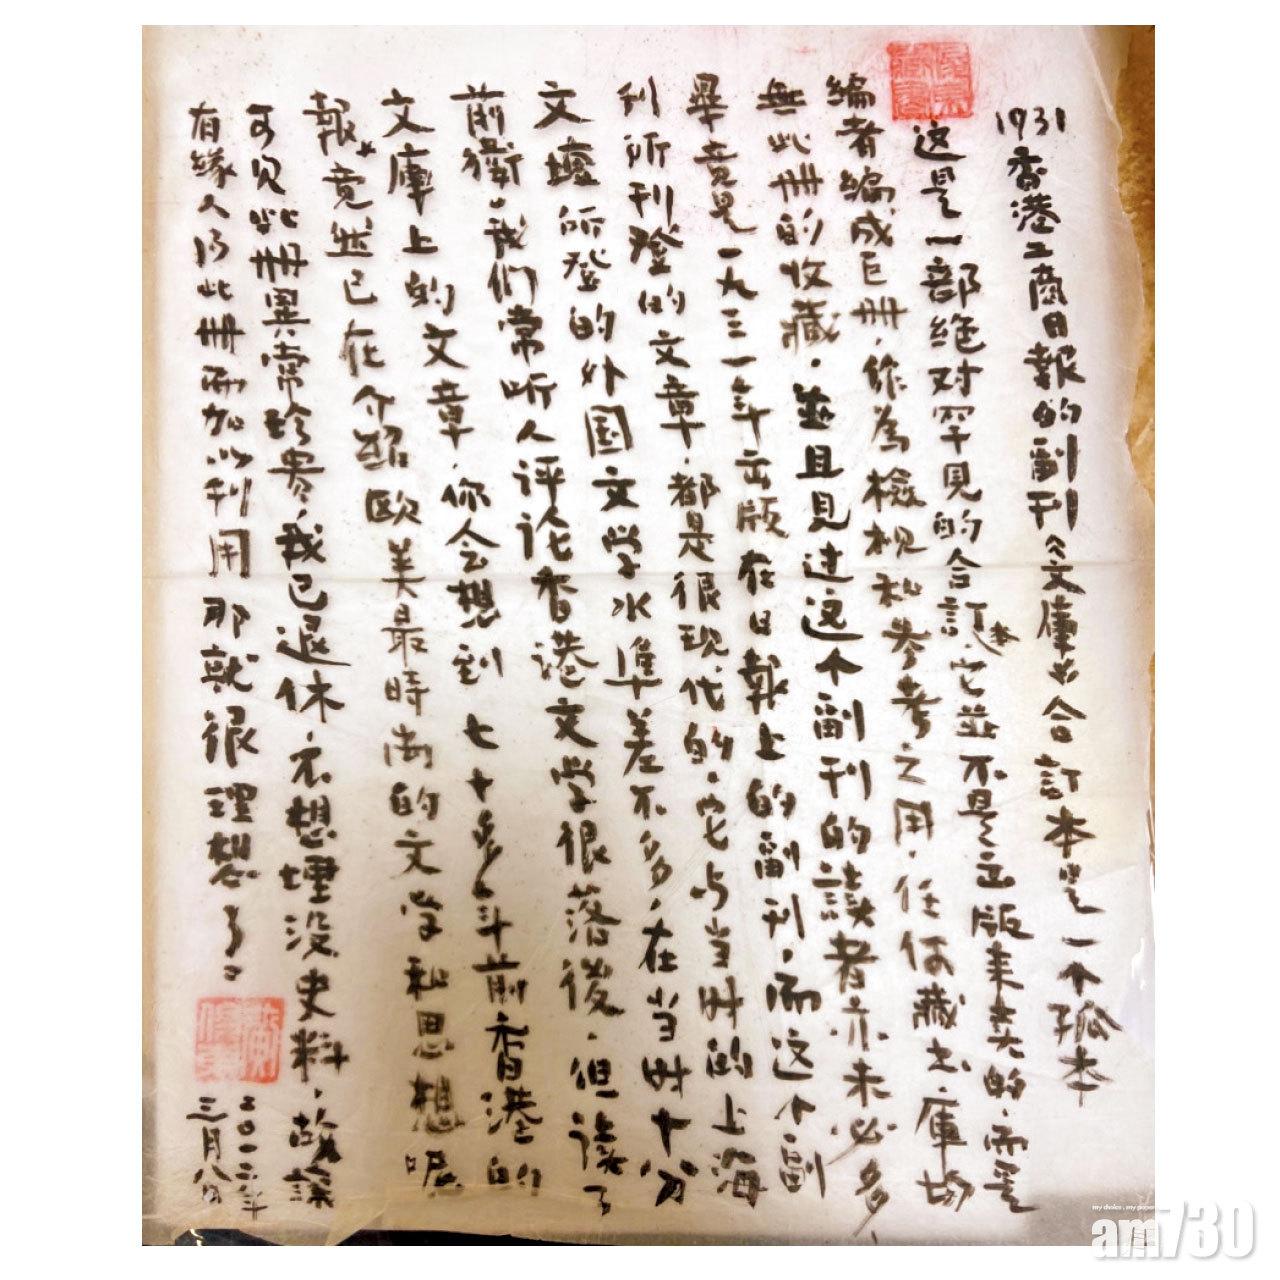 1931香港工商日報的副刊《文庫》合訂本是一个孤本
这是一部絶对罕見的合訂本,它並不是出版来卖的,而是
編者編成巨冊,作為檢視和参考之用,任何藏书庫均
無此冊的收藏,並且見过这个副刊的読者亦未必多,
畢竟是一九三一年出版在日報上的副刊,而这个副
刊所刊登的文章,都是很現代的,它与当时的上海
文壇所登的外国文学水準差不多,在当时十分
前衛,我们常听人评论香港文学很落後,但读了
文庫上的文章,你会想到 七十多年前香港的
報章竟然已在介紹欧美最時尚的文学和思想呢
可见此冊異常珍贵,我已退休,不想埋没史料,故讓
有緣人得此冊而加以利用 那就很理想了。
二〇一二年
三月八日
my choice, my paper
am730